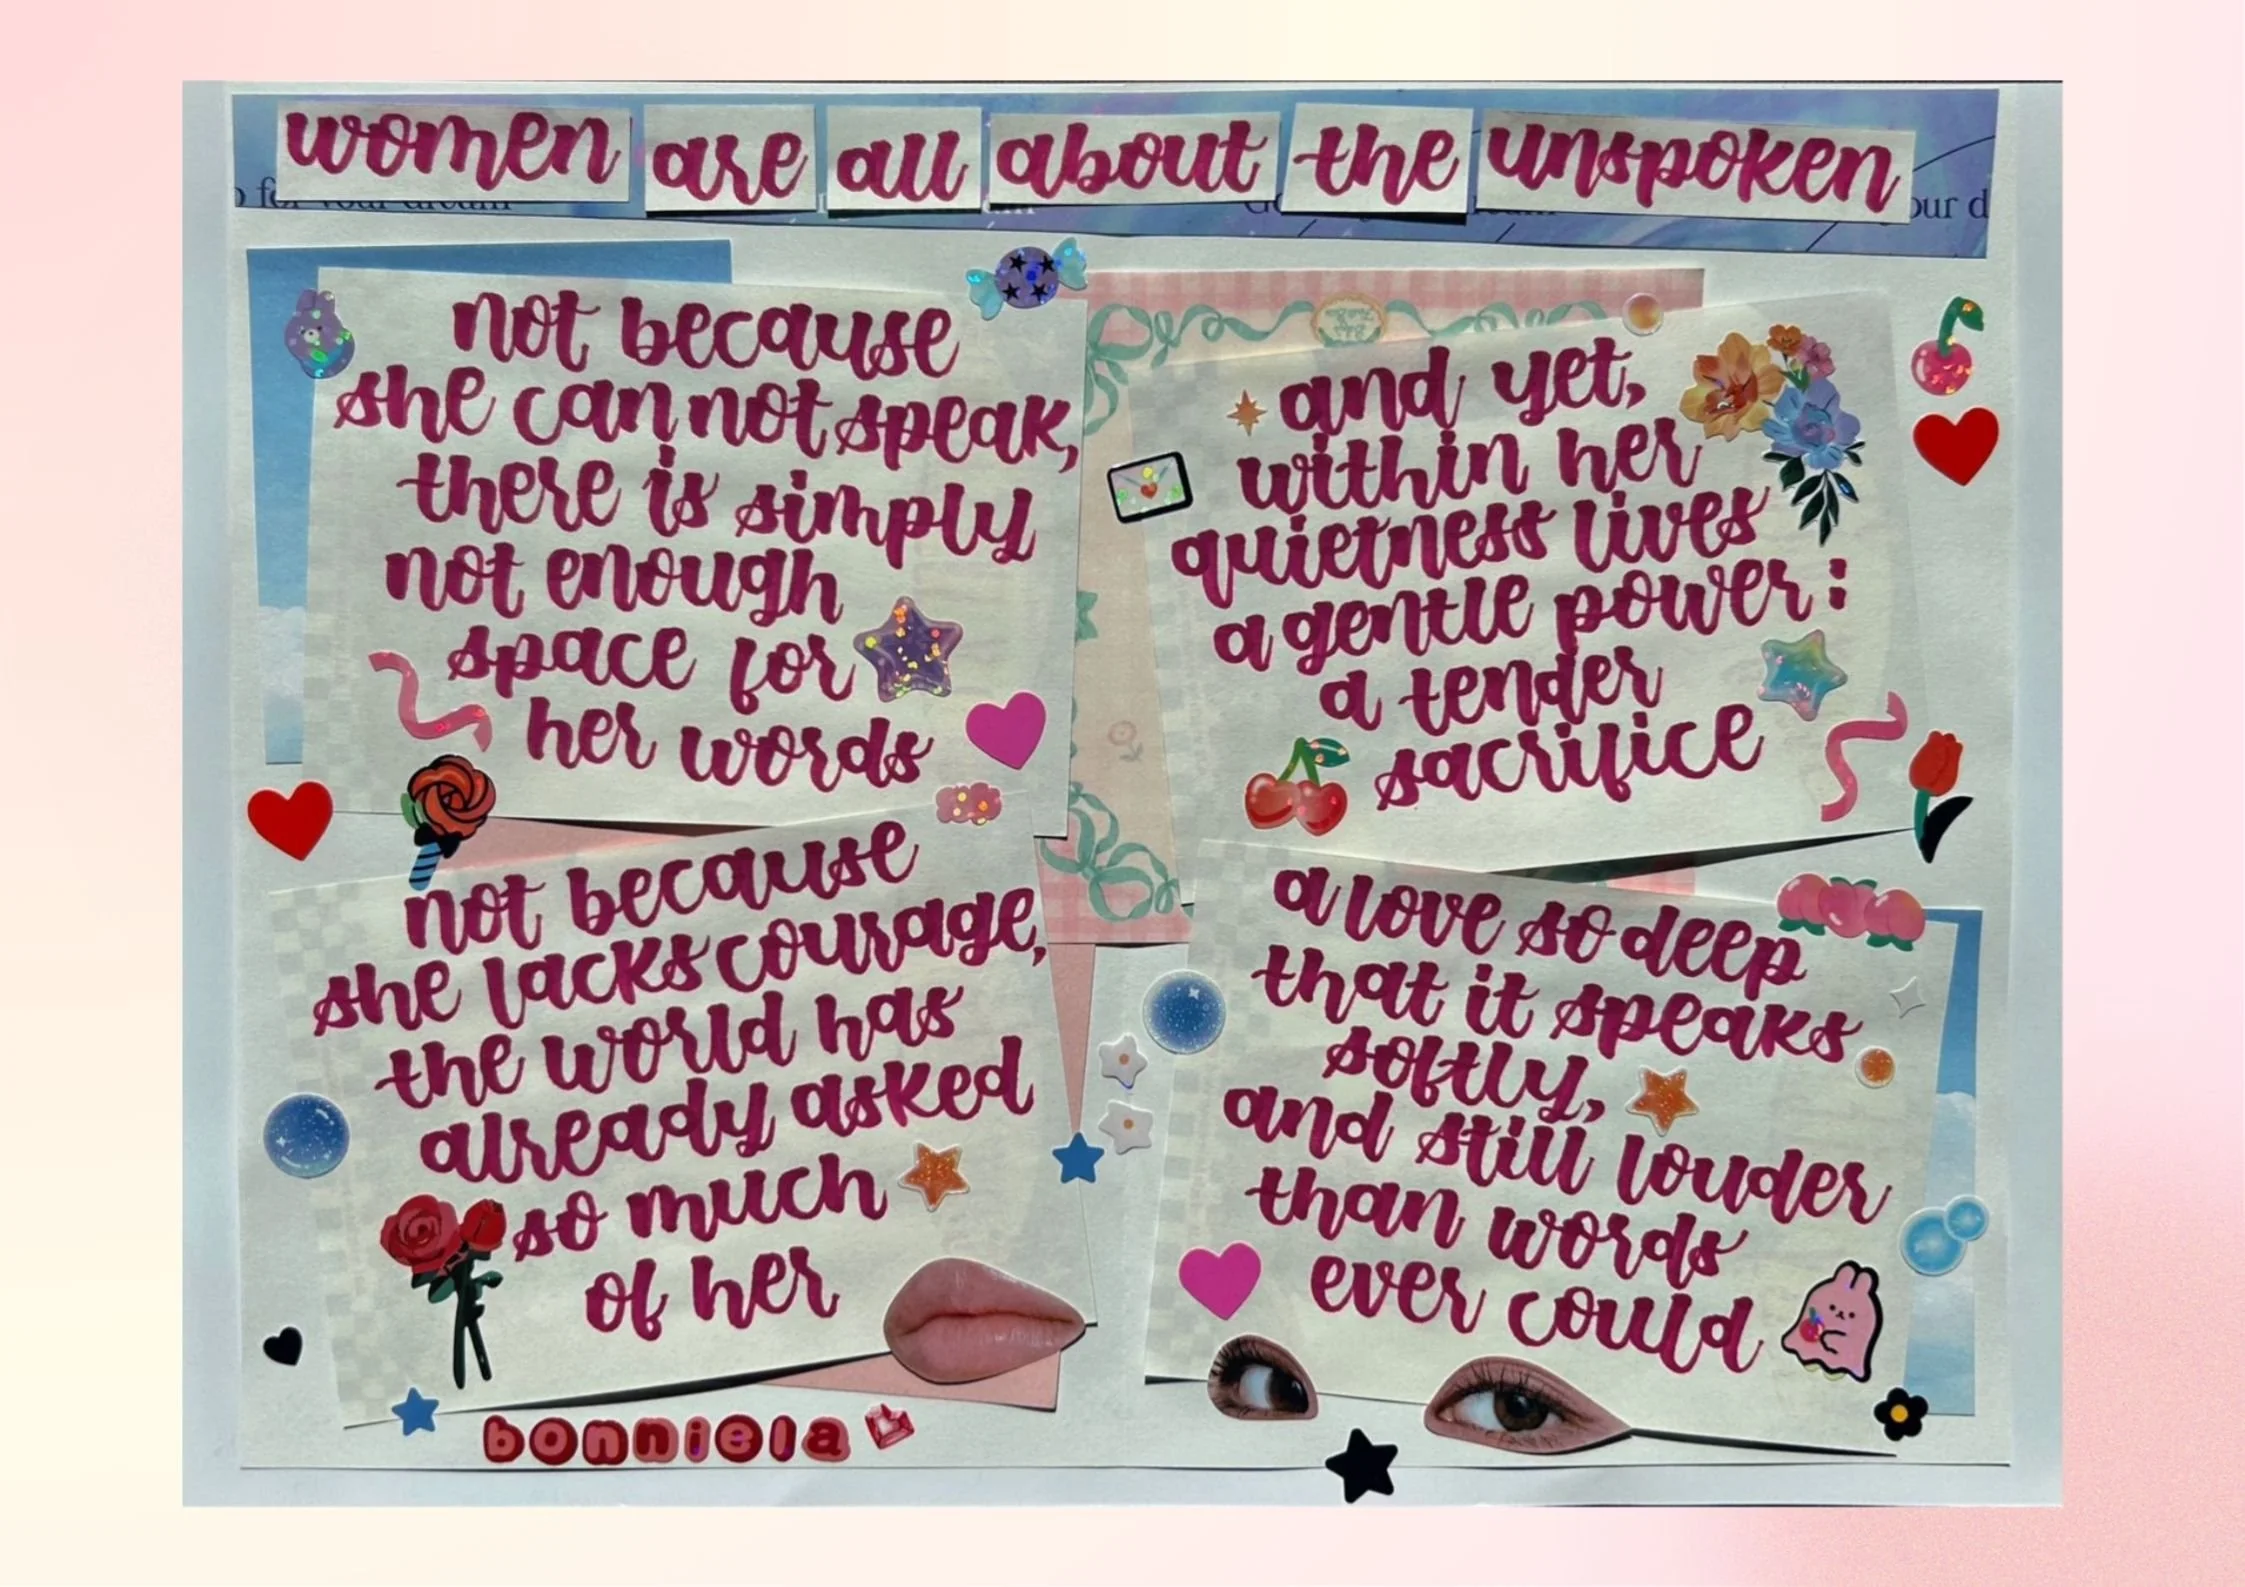 women are all about the unspoken
for your dream
our d
not because
she can not speak,
there is simply
not enough
space for
her words
not because
she lacks courage,
the world has
already asked
so much
of her
and yet,
within her
quietness lives
a gentle power:
a tender
sacrifice
a love so deep
that it speaks
softly,
and still louder
than words
ever could
bonniela